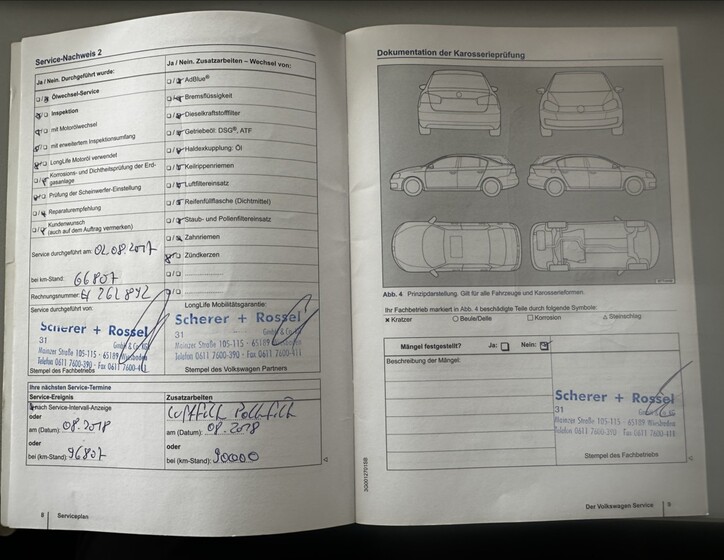 Service-Nachweis 2
Ja / Nein. Durchgeführt wurde:
Ölwechsel-Service
Inspektion
mit Motorölwechsel
mit erweitertem Inspektionsumfang
LongLife Motoröl verwendet
Korrosions- und Dichtheitsprüfung der Erd-
gasanlage
Prüfung der Scheinwerfer-Einstellung
Reparaturempfehlung
Kundenwunsch
(auch auf dem Auftrag vermerken)
Service durchgeführt am: 02.08.2017
bei km-Stand: 66807
Rechnungsnummer:
Service durchgeführt von:
Scherer + Rossel
GmbH & Co. KG
31
Mainzer Straße 105-115 · 65189 Wiesbaden
Telefon 0611 7600-390 · Fax 0611 7600-411
Stempel des Fachbetriebs
Ja / Nein. Zusatzarbeiten – Wechsel von:
AdBlue®
Bremsflüssigkeit
Dieselkraftstofffilter
Getriebeöl: DSG®, ATF
Haldexkupplung: Öl
Keilrippenriemen
Luftfiltereinsatz
Reifenfüllflasche (Dichtmittel)
Staub- und Pollenfiltereinsatz
Zahnriemen
Zündkerzen
LongLife Mobilitätsgarantie:
Scherer + Rossel
GmbH & Co. KG
31
Mainzer Straße 105-115 · 65189 Wiesbaden
Telefon 0611 7600-390 · Fax 0611 7600-411
Stempel des Volkswagen Partners
Ihre nächsten Service-Termine
Service-Ereignis
nach Service-Intervall-Anzeige
oder
am (Datum): 08.2018
oder
bei (km-Stand): 96807
Zusatzarbeiten
Luftfilt Pollfilt
am (Datum): 08.2018
oder
bei (km-Stand): 90000
8 Serviceplan
Dokumentation der Karosserieprüfung
Abb. 4 Prinzipdarstellung. Gilt für alle Fahrzeuge und Karosserieformen.
Ihr Fachbetrieb markiert in Abb. 4 beschädigte Teile durch folgende Symbole:
Kratzer Beule/Delle Korrosion Steinschlag
Mängel festgestellt? Ja: Nein:
Beschreibung der Mängel:
Scherer + Rossel
31
Mainzer Straße 105-115 · 65189 Wiesbaden
Telefon 0611 7600-390 Fax 0611 7600-411
Stempel des Fachbetriebs
Der Volkswagen Service 9